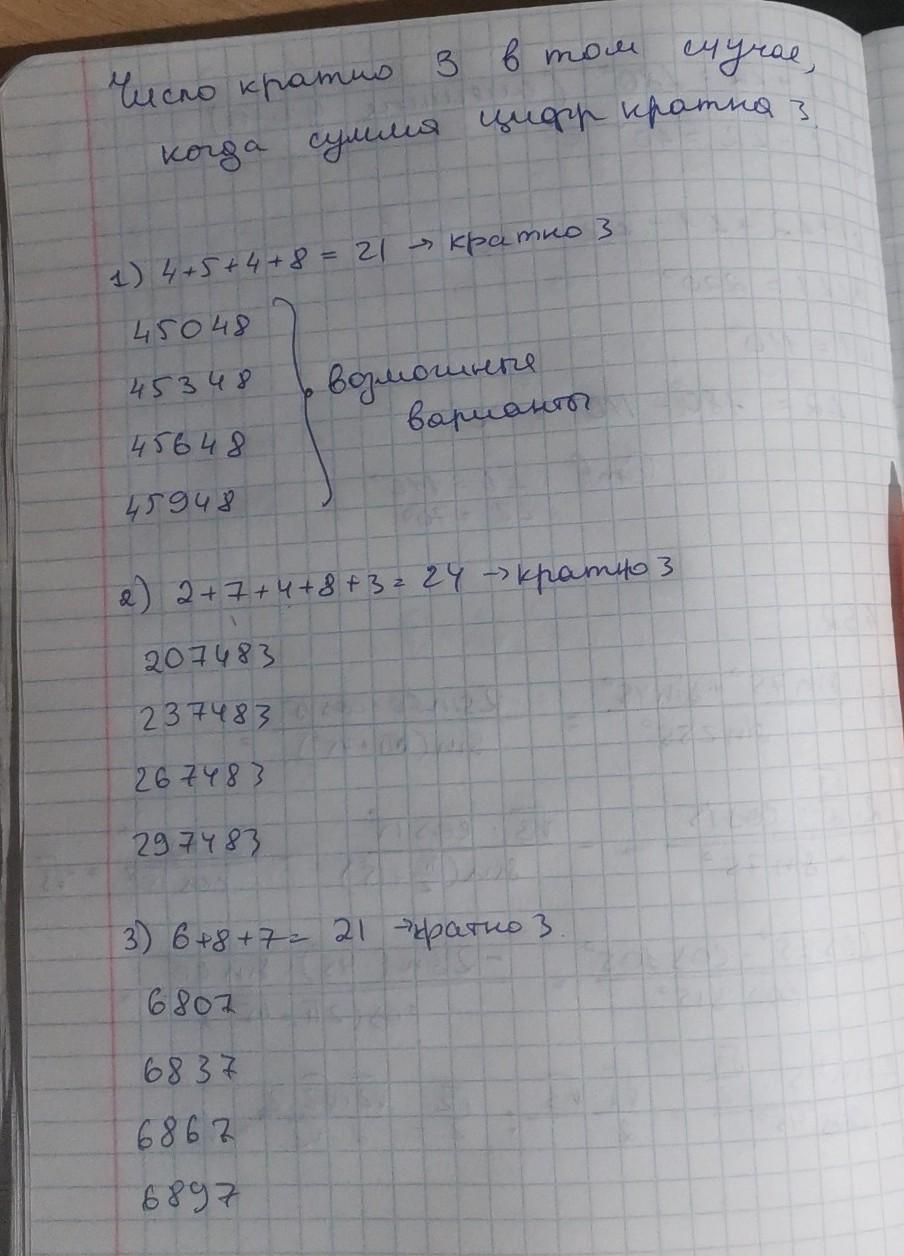 Число кратно 3 в том случае,
когда сумма цифр кратна 3
1) 4+5+4+8 = 21 → кратно 3
45048
45348
возможные
45648
варианты
45948
2) 2+7+4+8+3= 24 → кратно 3
207483
237483
267483
297483
3) 6+8+7= 21 → кратно 3.
6807
6837
6867
6897